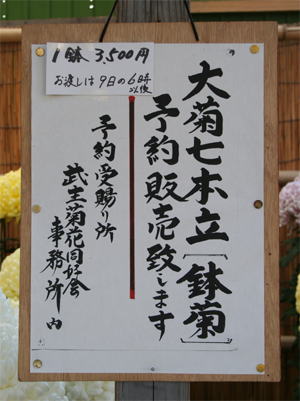 1鉢 3,500円
お渡しは9日の6時
以後
大菊七本立[鉢菊]
予約販売致します
予約受賜り所
武生菊花同好会
事務所内